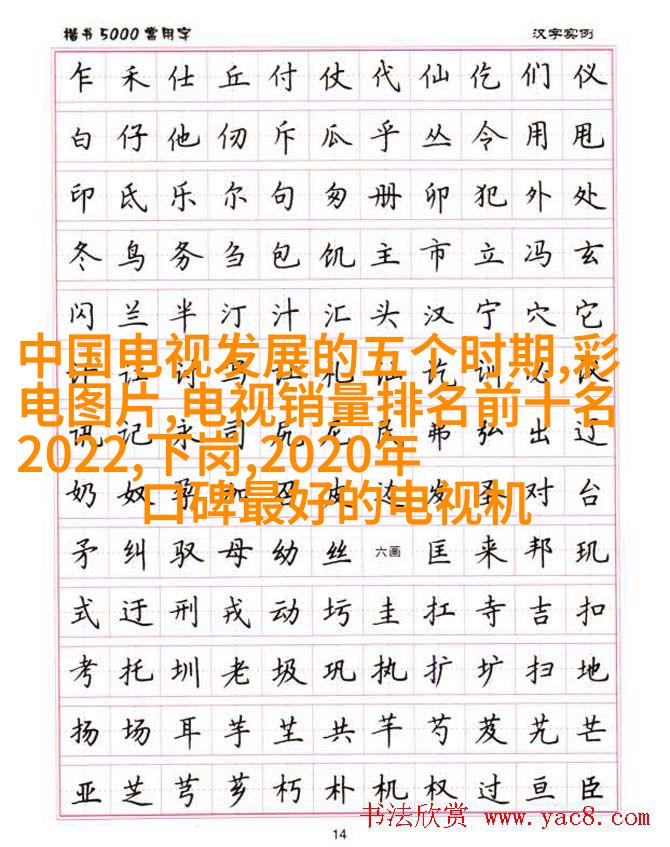 楷书5000常用字 汉字实例
乍 禾 仕 丘 付 仗 代 仙 仡 们 仪
白 仔 他 仞 斥 瓜 乎 丛 令 用 甩
印 氐 乐 尔 句 匆 册 卯 犯 外 处
冬 鸟 务 刍 包 饥 主 市 立 冯 玄
闪 兰 半 汀 汁 汇 头 汉 宁 穴 它
中国电视发展的五个时期,彩
讨 写 礼 讫 训 必 议
电图片,电视销量排名前十名
讯 记 永 司 弗 弘 出 辽
2022,下岗,2020年
奶 奴 孕 加 召 皮 边 发 圣 对 台
口碑最好的电视机
矛 纠 驭 母 幼 丝 六画 匡 来 邦 玑
式 迂 刑 戎 动 圬 圭 扛 寺 吉 扣
考 托 圳 老 圾 巩 执 扩 圹 扫 地
扬 场 耳 芋 芏 共 芊 芍 芨 芄 芒
亚 芝 芎 芗 朽 朴 机 权 过 亘 臣
书法欣赏 www.yac8.com
14